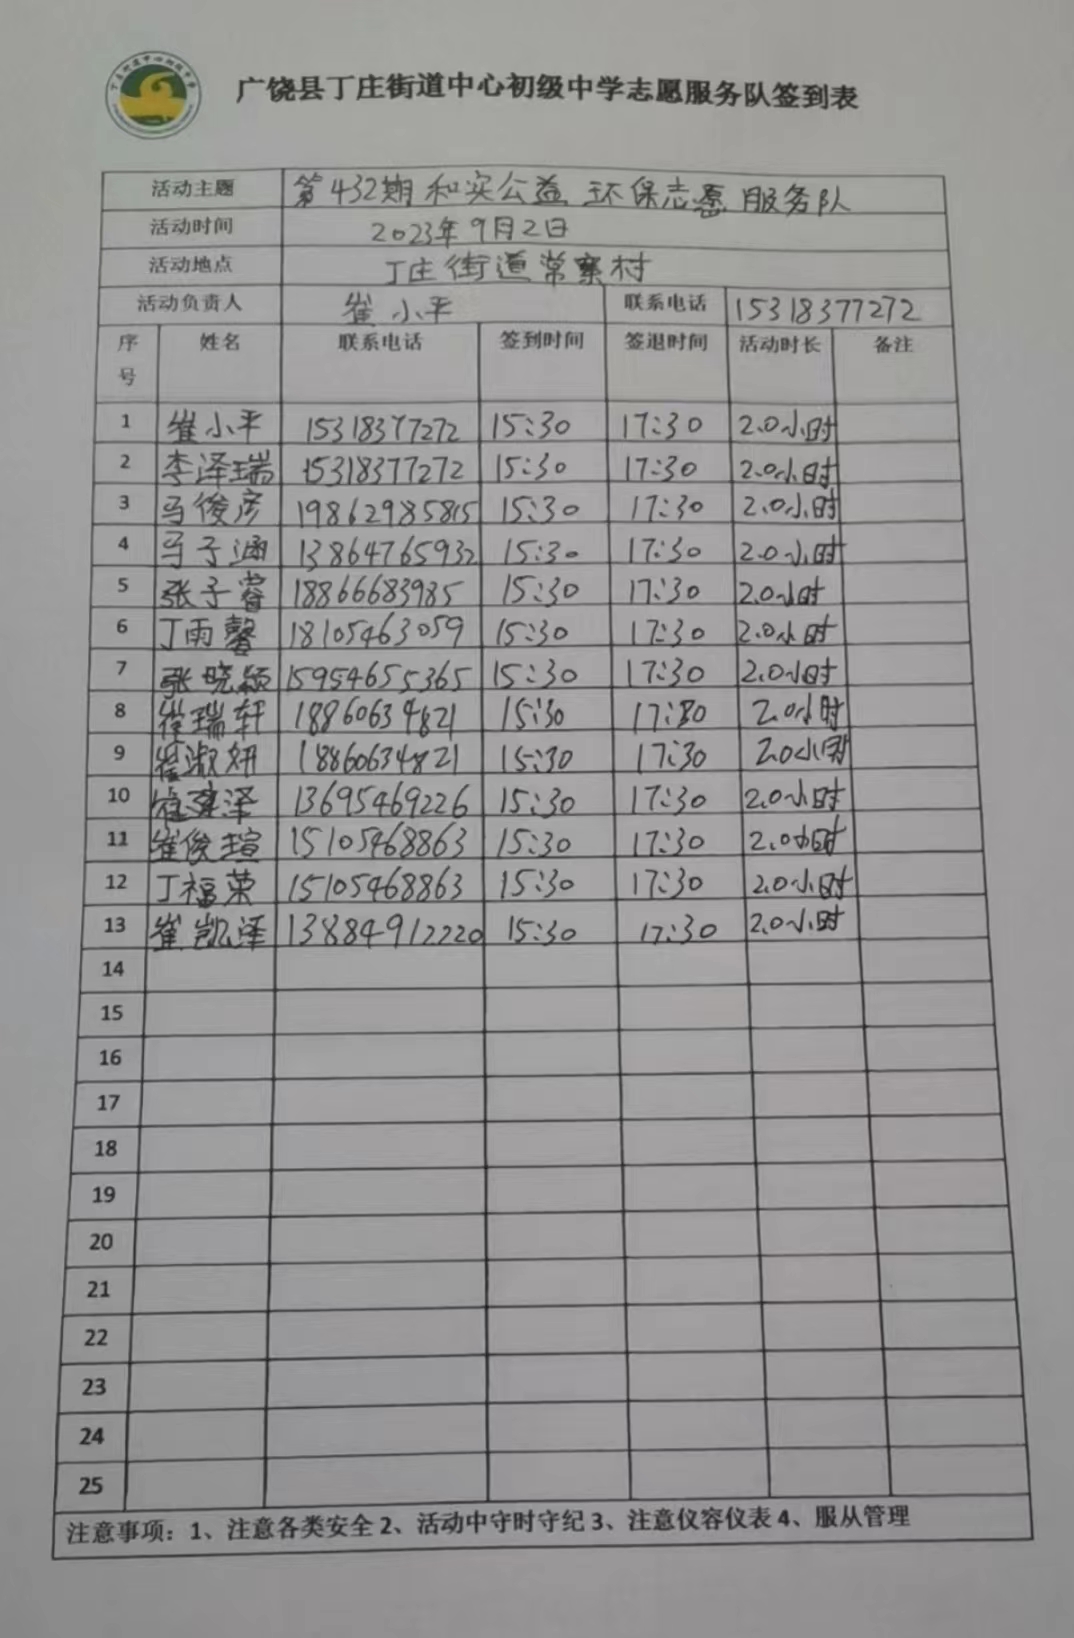 广饶县丁庄街道中心初级中学志愿服务队签到表
活动主题 第432期和实公益 环保志愿服务队
活动时间 2023年9月2日
活动地点 丁庄街道常寨村
活动负责人 崔小平 联系电话 15318377272
序号 姓名 联系电话 签到时间 签退时间 活动时长 备注
1 崔小平 15318377272 15:30 17:30 2.0小时
2 李泽瑞 15318377272 15:30 17:30 2.0小时
3 马俊彦 19862985815 15:30 17:30 2.0小时
4 马子涵 13864765932 15:30 17:30 2.0小时
5 张子睿 18866683985 15:30 17:30 2.0小时
6 丁雨馨 18105463059 15:30 17:30 2.0小时
7 张晓颖 15954655365 15:30 17:30 2.0小时
8 崔瑞轩 18860634821 15:30 17:30 2.0小时
9 崔淑妍 18860634821 15:30 17:30 2.0小时
10 崔建泽 13695469226 15:30 17:30 2.0小时
11 崔俊瑄 15105468863 15:30 17:30 2.0小时
12 丁福荣 15105468863 15:30 17:30 2.0小时
13 崔凯泽 13884912220 15:30 17:30 2.0小时
14
15
16
17
18
19
20
21
22
23
24
25
注意事项：1、注意各类安全2、活动中守时守纪3、注意仪容仪表4、服从管理